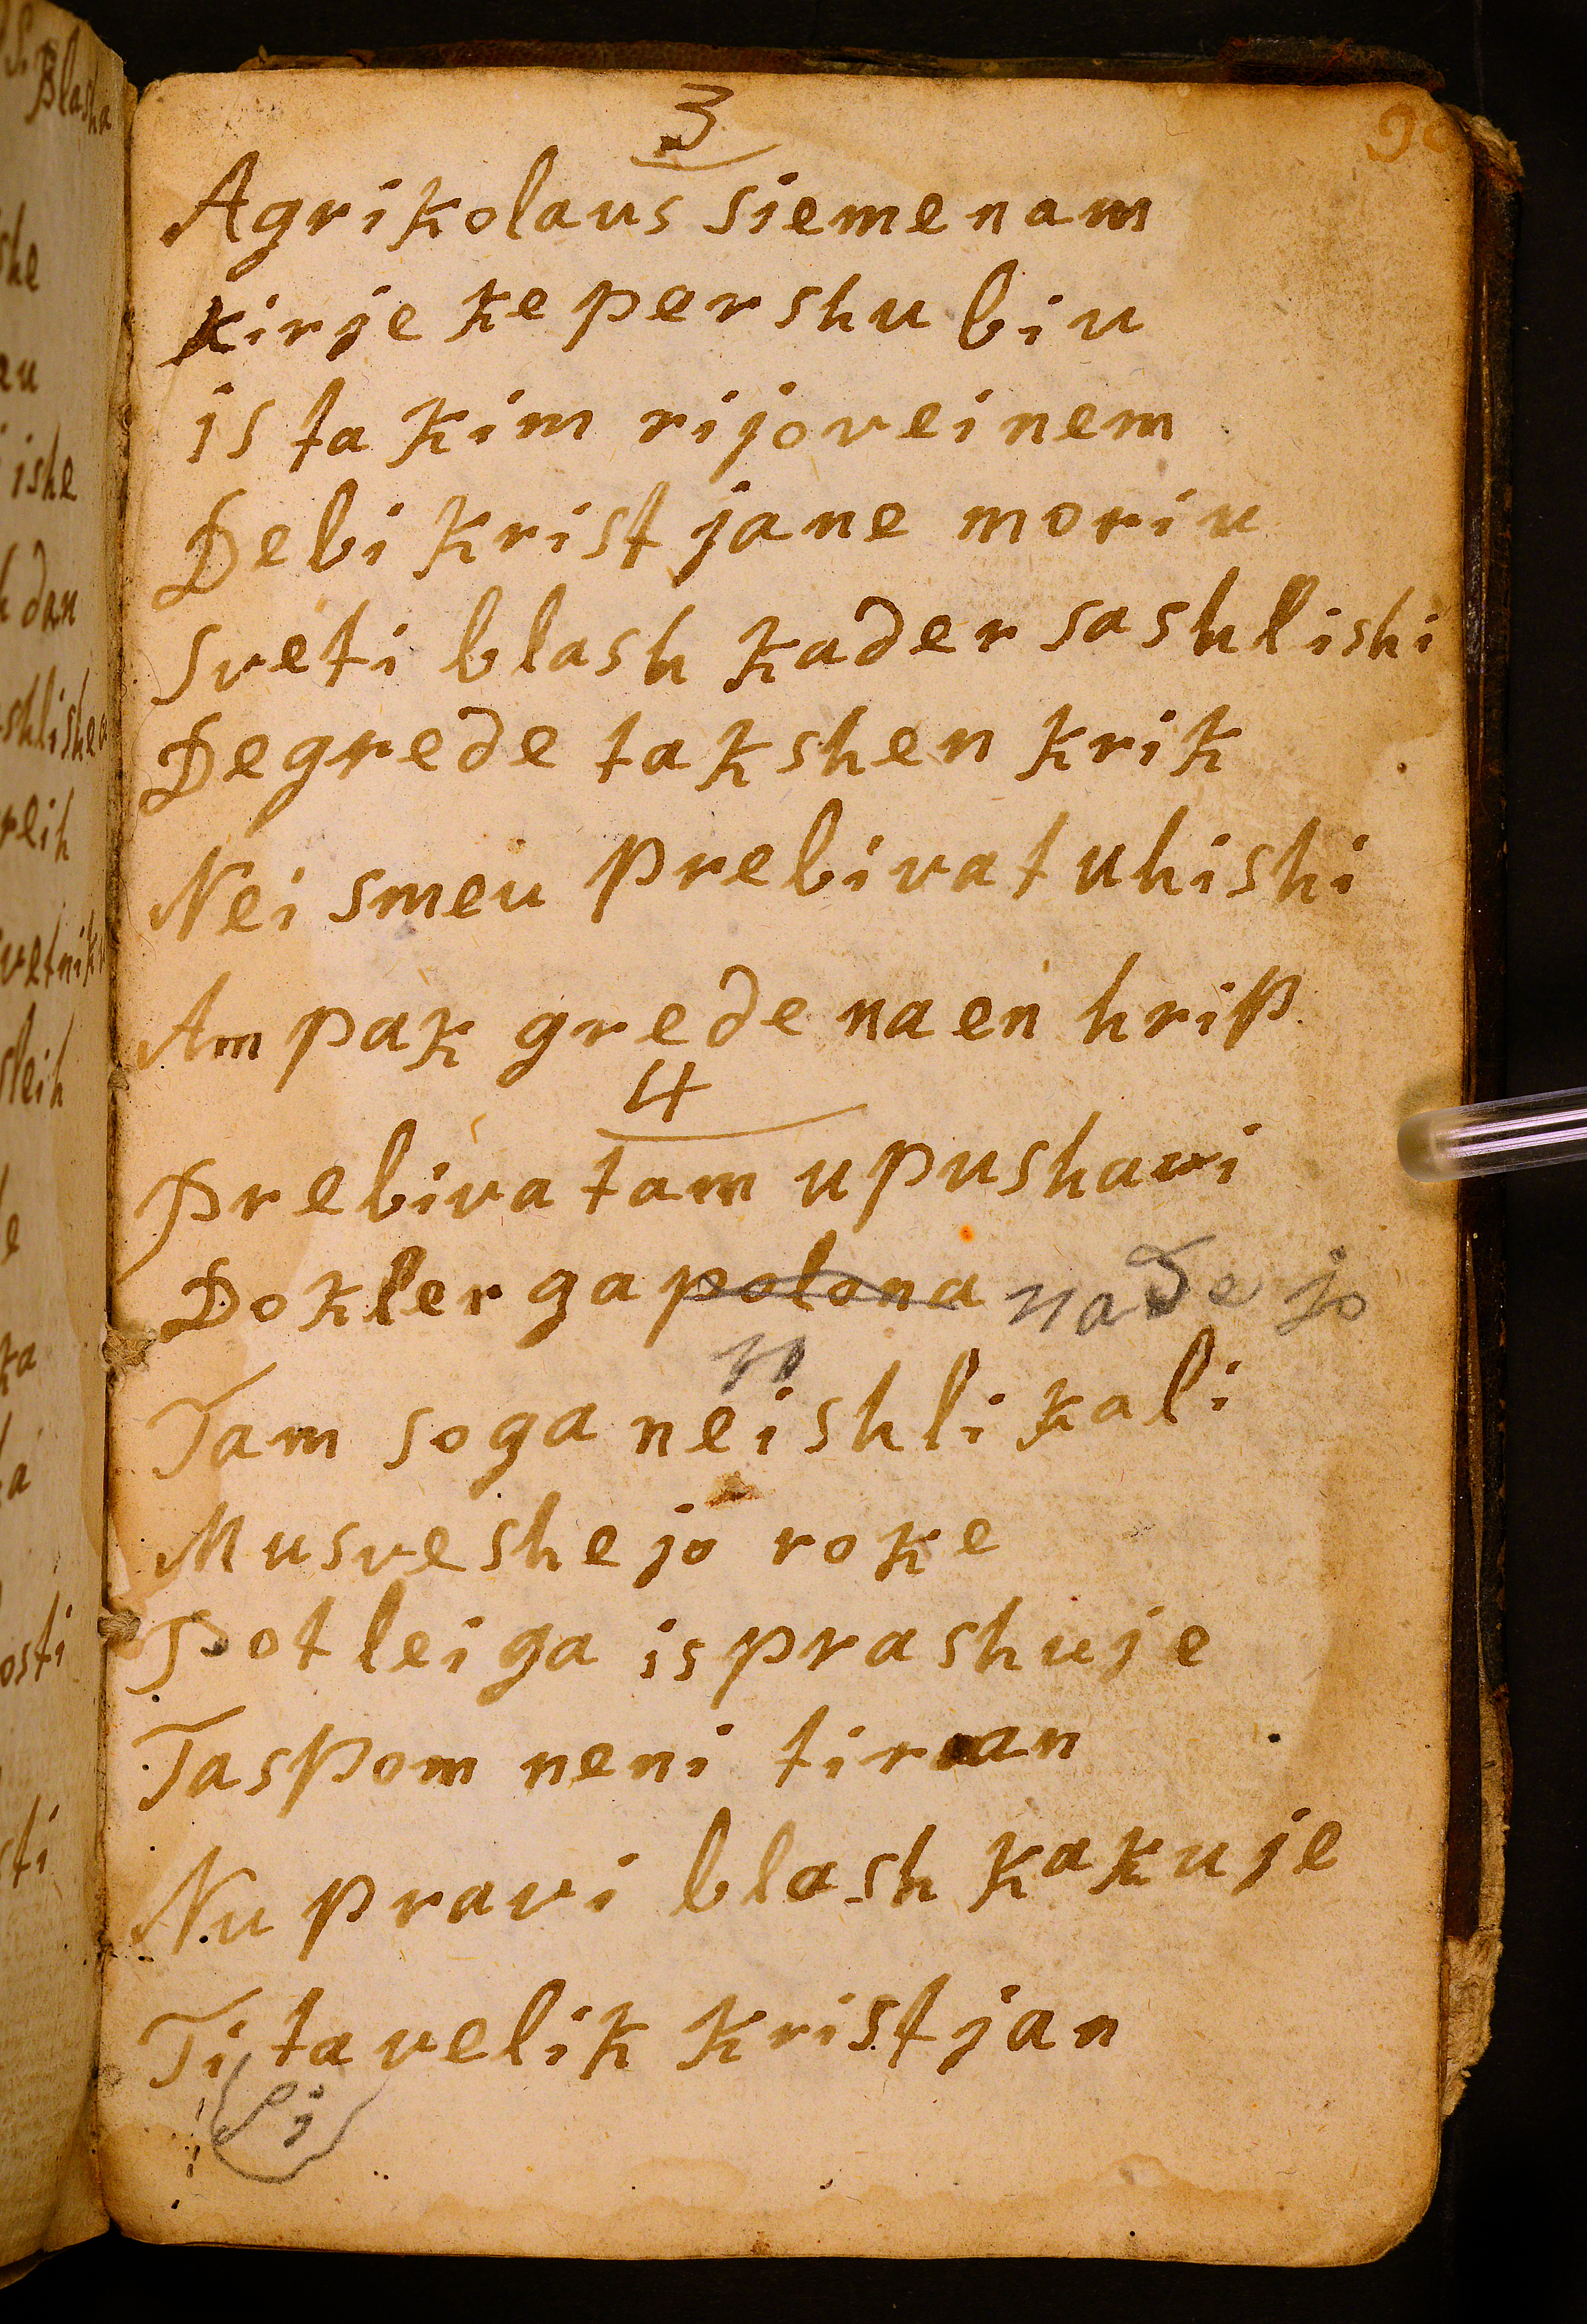 3
Agrikolaus siemenam
kirje ke pershu biu
is ta kim rijoveinem
Debi kristjane moriu
Sveti blash kader sashlishi
Degrede takshen krik
Nei smeu prebivat uhishi
Ampak grede na en hrip
4
Prebiva tam upushavi
Dokler ga polona nadejo
Tam soga neishli kali
Musveshejo roke
Potlei ga isprashuje
Taspom neni tiran
Nu pravi blash kakuje
Ti ta velik kristjan
si